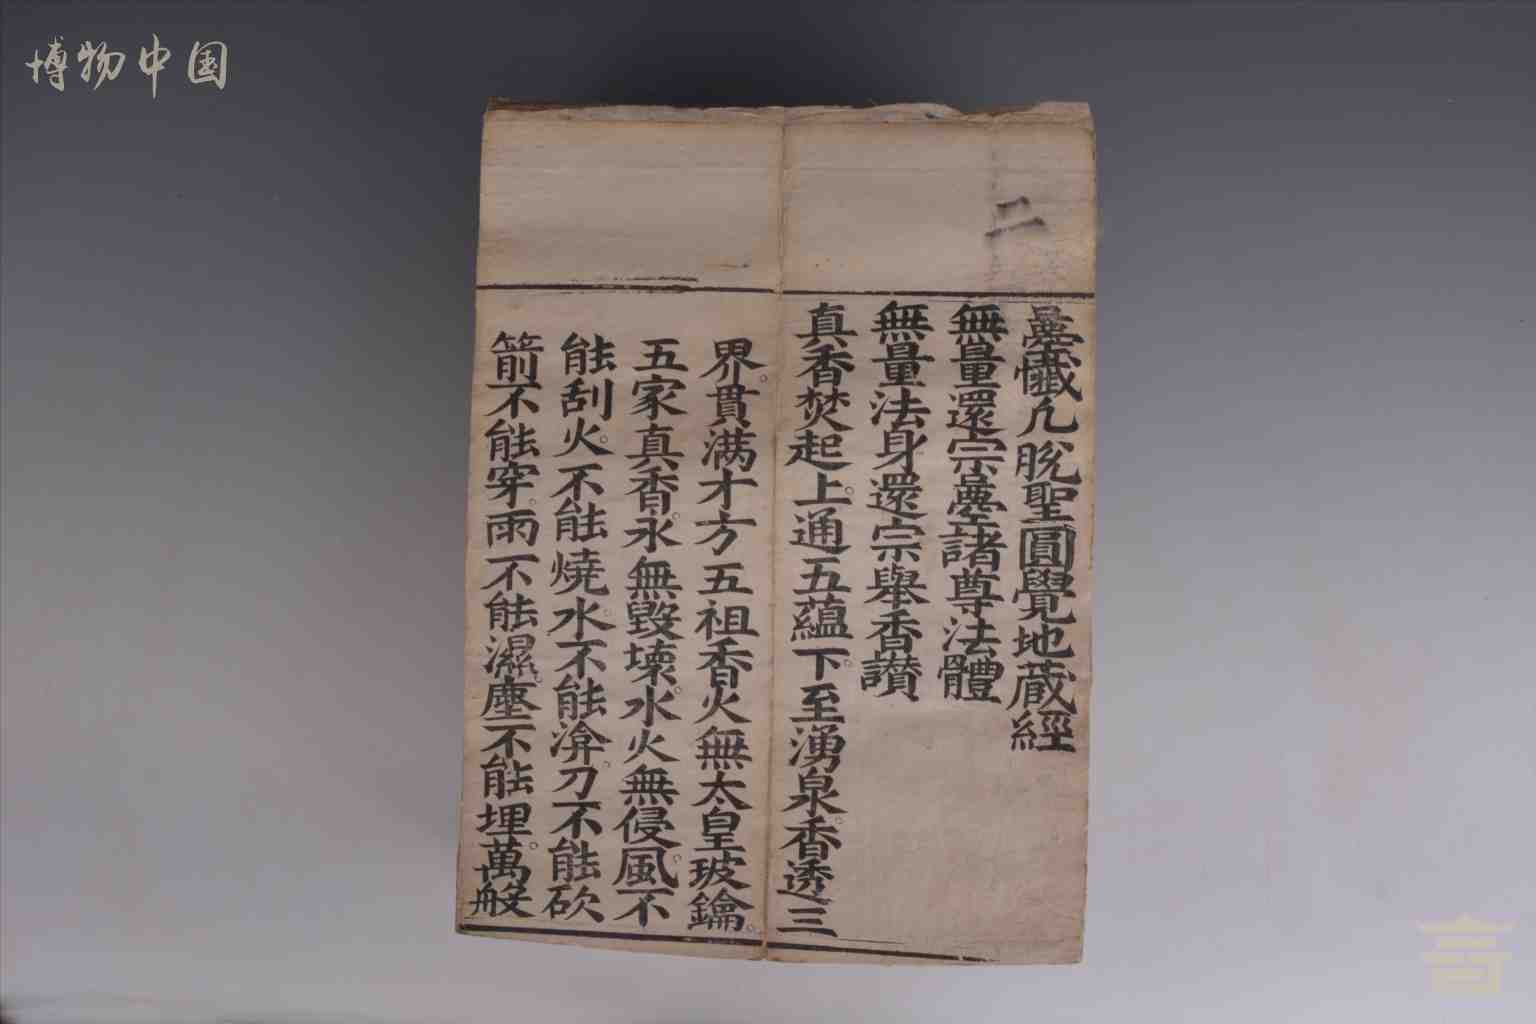 博物中国
二
懺凡脫聖圓覺地蔵經
無量還宗諸尊法體
無量法身還宗舉香讃
真香焚起上通五蘊下至湧泉香透三
界貫满才方五祖香火無太皇玻鑰
五家真香永無毀壞水火無侵風不
能刮火不能燒水不能渰刀不能砍
箭不能穿雨不能濕塵不能埋萬般